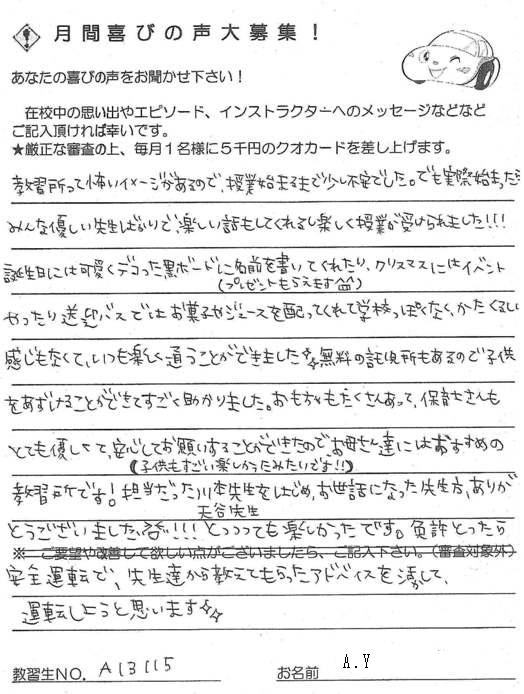 月間喜びの声大募集!
あなたの喜びの声をお聞かせ下さい!
在校中の思い出やエピソード、インストラクターへのメッセージなどなど
ご記入頂ければ幸いです。
★厳正な審査の上、毎月1名様に5千円のクオカードを差し上げます。
教習所って怖いイメージがあるので、授業始まるまで少し不安でした。でも実際始まったら
みんな優しい先生ばかりで、楽しい話もしてくれるし楽しく授業が受けられました!!!
誕生日には可愛くデコった黒ボードに名前を書いてくれたり、クリスマスにはイベント
(プレゼントもらえます)
やったり送迎バスではお菓子やジュースを配ってくれて学校っぽくなく、かたくるしい
感じもなくて、いつも楽しく通うことができました 無料の託児所もあるので子供
をあずけることができてすごく助かりました。おもちゃもたくさんあって、保育士さんも
とても優しくて、安心してお願いすることができたので、お母さん達にはおすすめの
(子供もすごい楽しかったみたいです!!)
教習所です!担当だった川本先生をはじめ、お世話になった先生方、ありが
天谷先生
とうございました!!! とっっっても楽しかったです。免許とったら
※ ご要望や改善して欲しい点がございましたら、ご記入下さい。(審査対象外)
安全運転で、先生達から教えてもらったアドバイスを活かして、
運転しようと思います
教習生NO. A13115
お名前 A.Y